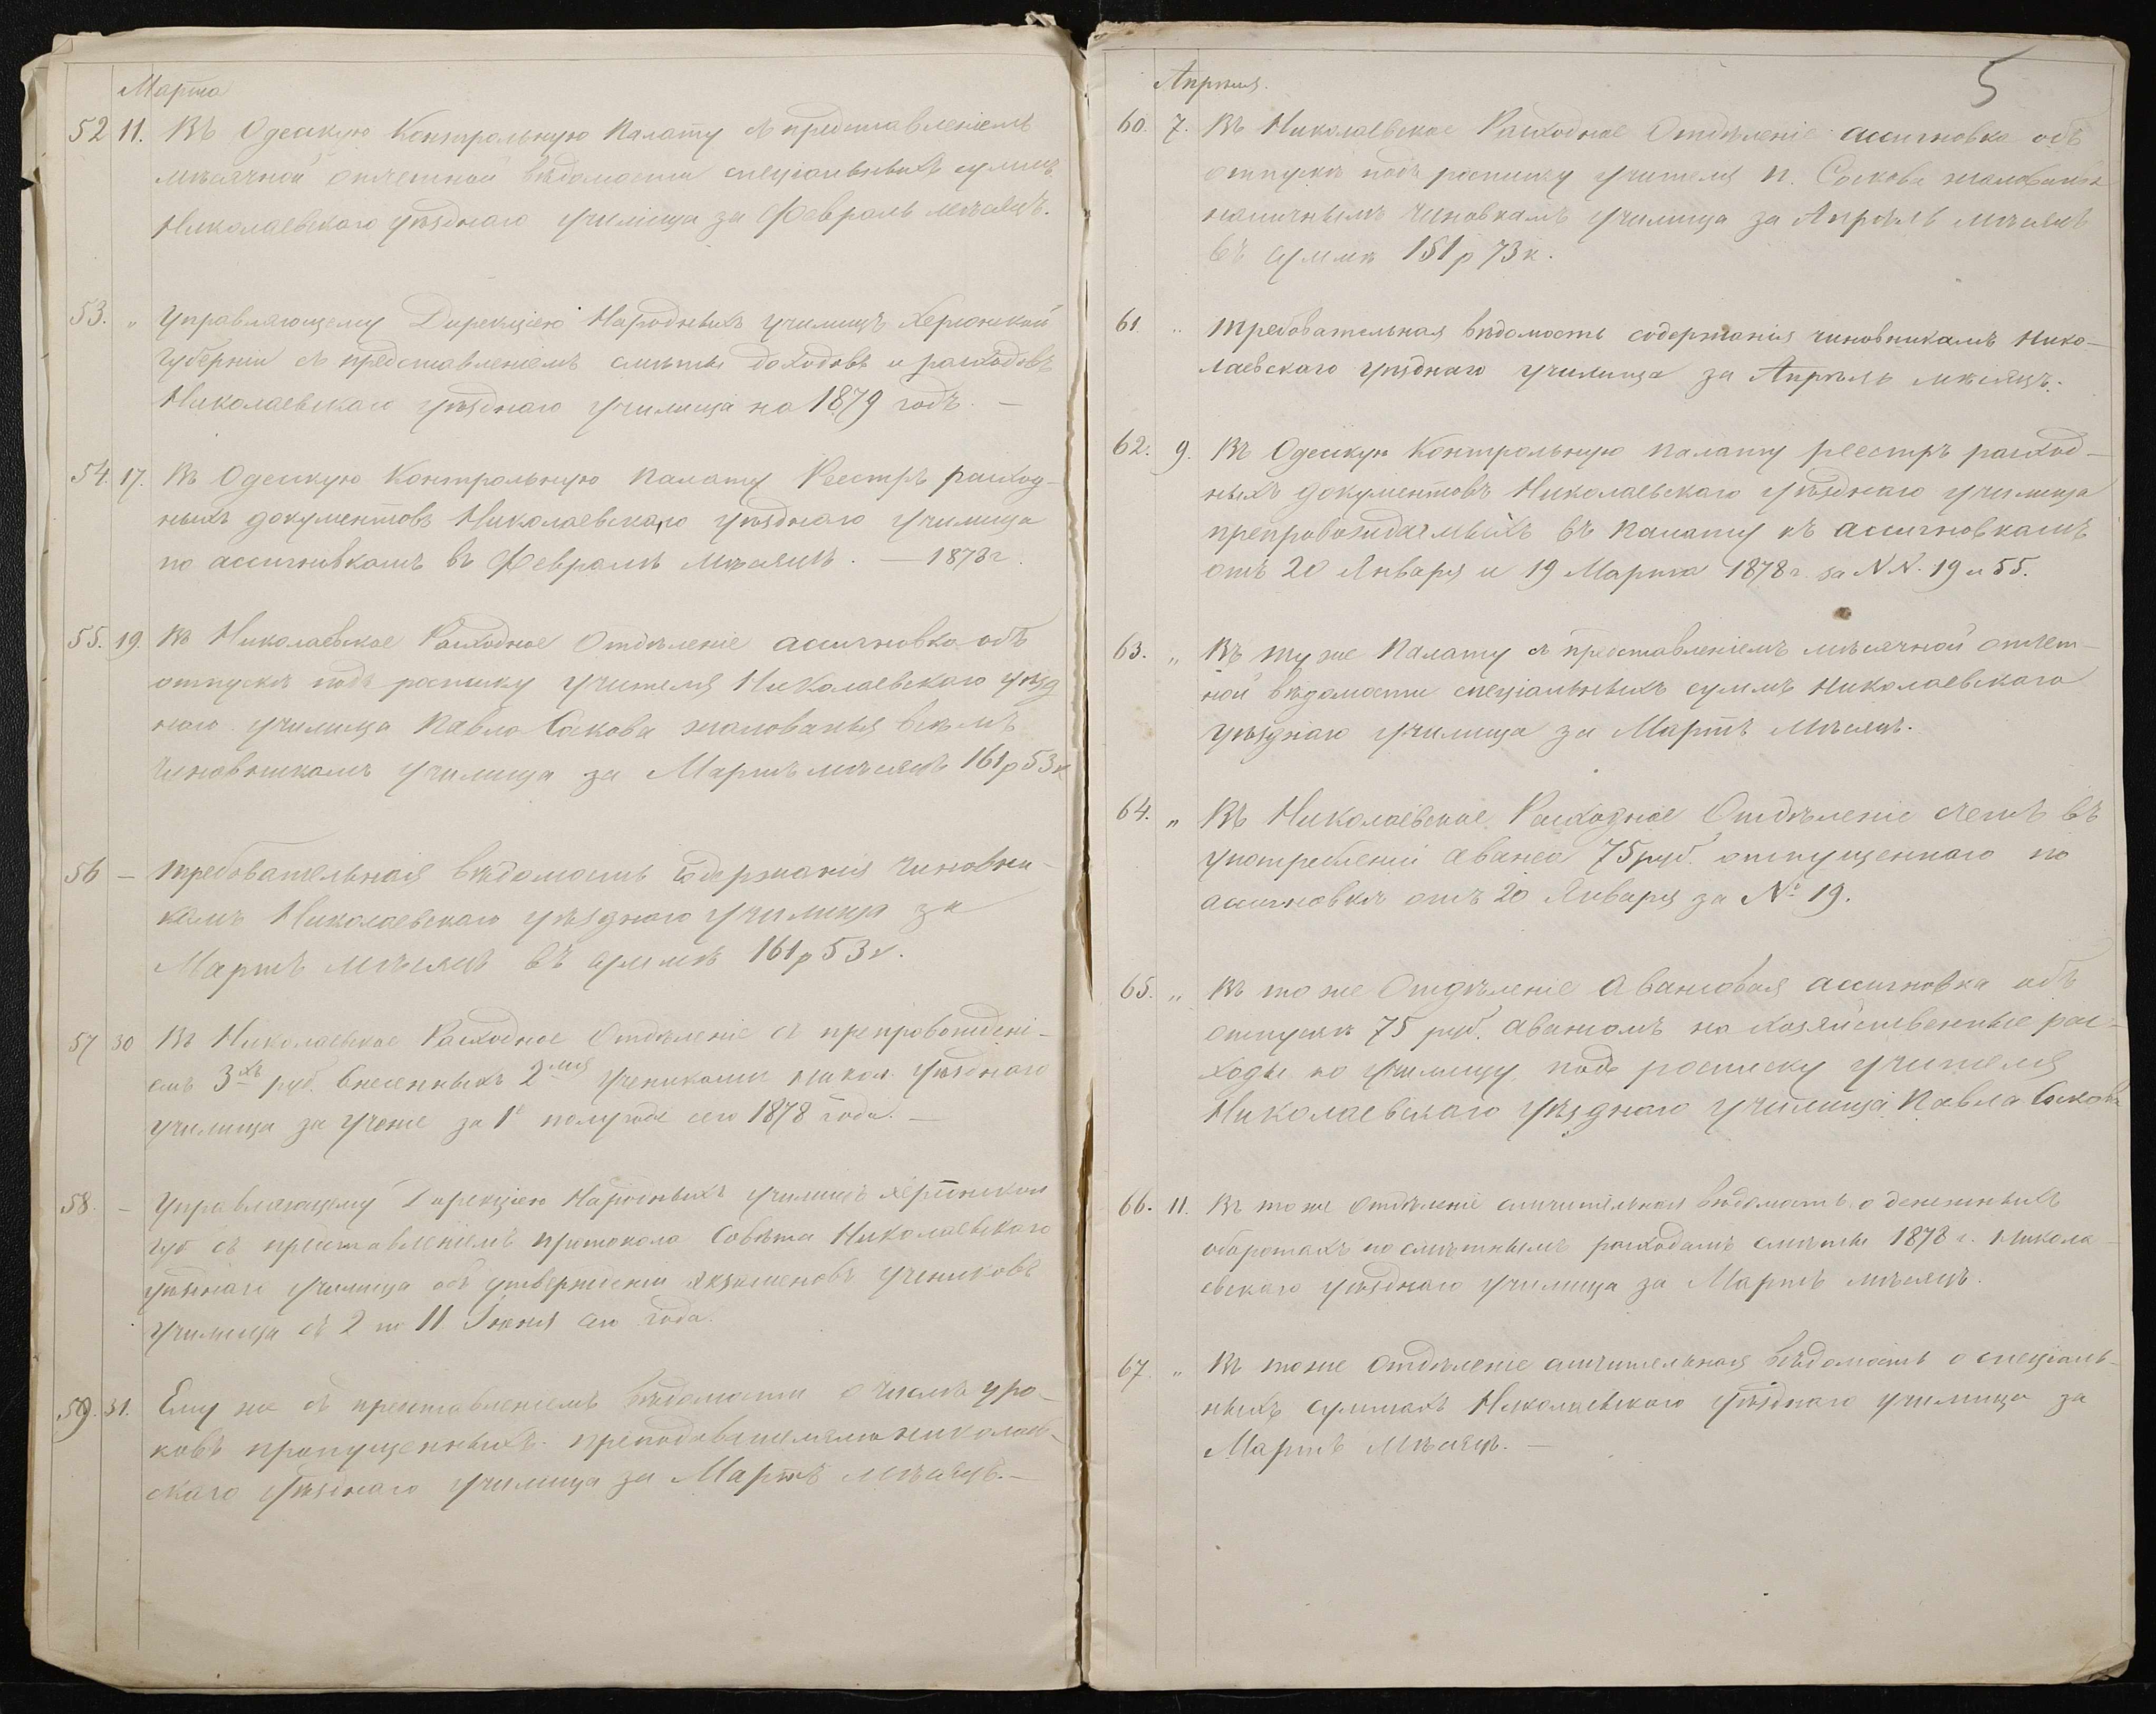 Марта
52 11. Въ Одесскую Контрольную Палату съ представленіемъ
мѣсячной отчетной вѣдомости спеціальныхъ суммъ
Николаевскаго уѣзднаго училища за Февраль мѣсяцъ.
53. " Управляющему Дирекціею Народныхъ училищъ Херсонской
Губерніи съ представленіемъ смѣты доходовъ и расходовъ
Николаевскаго уѣзднаго училища на 1879 годъ. —
54. 17. Въ Одесскую Контрольную Палату Реестръ расход-
ныхъ документовъ Николаевскаго уѣзднаго училища
по ассигновкамъ въ Февралѣ мѣсяцѣ. — 1878 г.
55. 19. Въ Николаевское Расходное Отдѣленіе ассигновка объ
отпускѣ подъ росписку учителя Николаевскаго уѣзд
наго училища Павла Сокова жалованья всѣмъ
чиновникамъ училища за Мартъ мѣсяцъ 161 р 53 к
56 — Требовательная вѣдомость содержанія чиновни-
камъ Николаевскаго уѣзднаго училища за
Мартъ мѣсяцъ въ суммѣ 161 р 53 к.
57 30 Въ Николаевское Расходное Отдѣленіе съ препровожденi-
емъ 3хъ руб. внесенныхъ 2мя учениками Никол. уѣзднаго
училища за ученіе за 1е полугодіе сего 1878 года. —
58. — Управляющему Дирекціею Народныхъ училищъ Херсонской
губ съ представленіемъ протокола Совѣта Николаевскаго
уѣзднаго училища объ утвержденіи экзаменовъ учениковъ
училища съ 2 по 11 Іюня сего года.
59. 31. Ему же съ представленіемъ вѣдомости о числѣ уро-
ковъ пропущенныхъ преподавателями Николаев-
скаго уѣзднаго училища за Мартъ мѣсяцъ. —
5
Апрѣля.
60. 7. Въ Николаевское Расходное Отдѣленіе ассигновка объ
отпускѣ подъ росписку учителя П. Сокова жалованья
наличнымъ чиновкамъ училища за Апрѣль мѣсяцъ
въ суммѣ 151 р 73 к.
61. " Требовательная вѣдомость содержанія чиновникамъ Нико-
лаевскаго уѣзднаго училища за Апрѣль мѣсяцъ.
62. 9. Въ Одесскую Контрольную Палату реестръ расход-
ныхъ документовъ Николаевскаго уѣзднаго училища
препровождаемыхъ въ Палату къ ассигновкамъ
отъ 20 Января и 19 Марта 1878 г. за N.N. 19 и 55.
63. " Въ ту же Палату съ представленіемъ мѣсячной отчет-
ной вѣдомости спеціальныхъ суммъ Николаевскаго
уѣзднаго училища за Мартъ мѣсяцъ.
64. " Въ Николаевское Расходное Отдѣленіе счетъ въ
употребленіи аванса 75 руб. отпущеннаго по
ассигновкѣ отъ 20 Января за № 19.
65. " Въ то же Отдѣленіе Авансовая ассигновка объ
отпускѣ 75 руб. авансомъ на хозяйственные рас-
ходы по училищу подъ росписку учителя
Николаевскаго уѣзднаго училища Павла Сокова
66. 11. Въ то же Отдѣленіе сличительная вѣдомость о денежныхъ
оборотахъ по смѣтнымъ расходамъ смѣты 1878 г. Никола-
евскаго уѣзднаго училища за Мартъ мѣсяцъ.
67. " Въ то же Отдѣленіе сличительная вѣдомость о спеціаль-
ныхъ суммахъ Николаевскаго уѣзднаго училища за
Мартъ мѣсяцъ. —